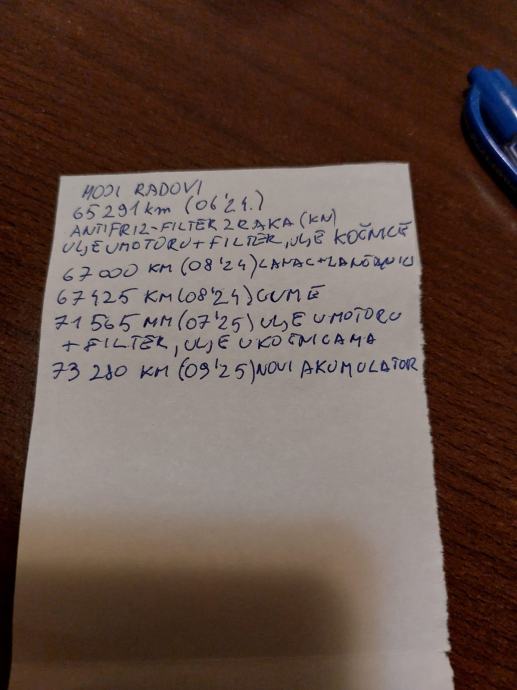 MOJI RADOVI
65 291 km (06'24.)
ANTIFRIZ-FILTER ZRAKA (KN)
ULJE U MOTORU + FILTER, ULJE KOČNICE
67 000 KM (08'24) LANAC + LANČANICI
67 425 KM (08'24) GUME
71 565 MM (07'25) ULJE U MOTORU
+ FILTER, ULJE U KOČNICAMA
73 280 KM (09'25) NOVI AKUMULATOR